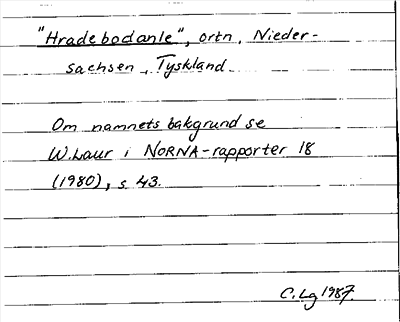 "Hradebodanle", ortn, Nieder-
sachsen, Tyskland
Om namnets bakgrund se
W. Laur i NORNA-rapporter 18
(1980), s 43.
C. Lg 1987.